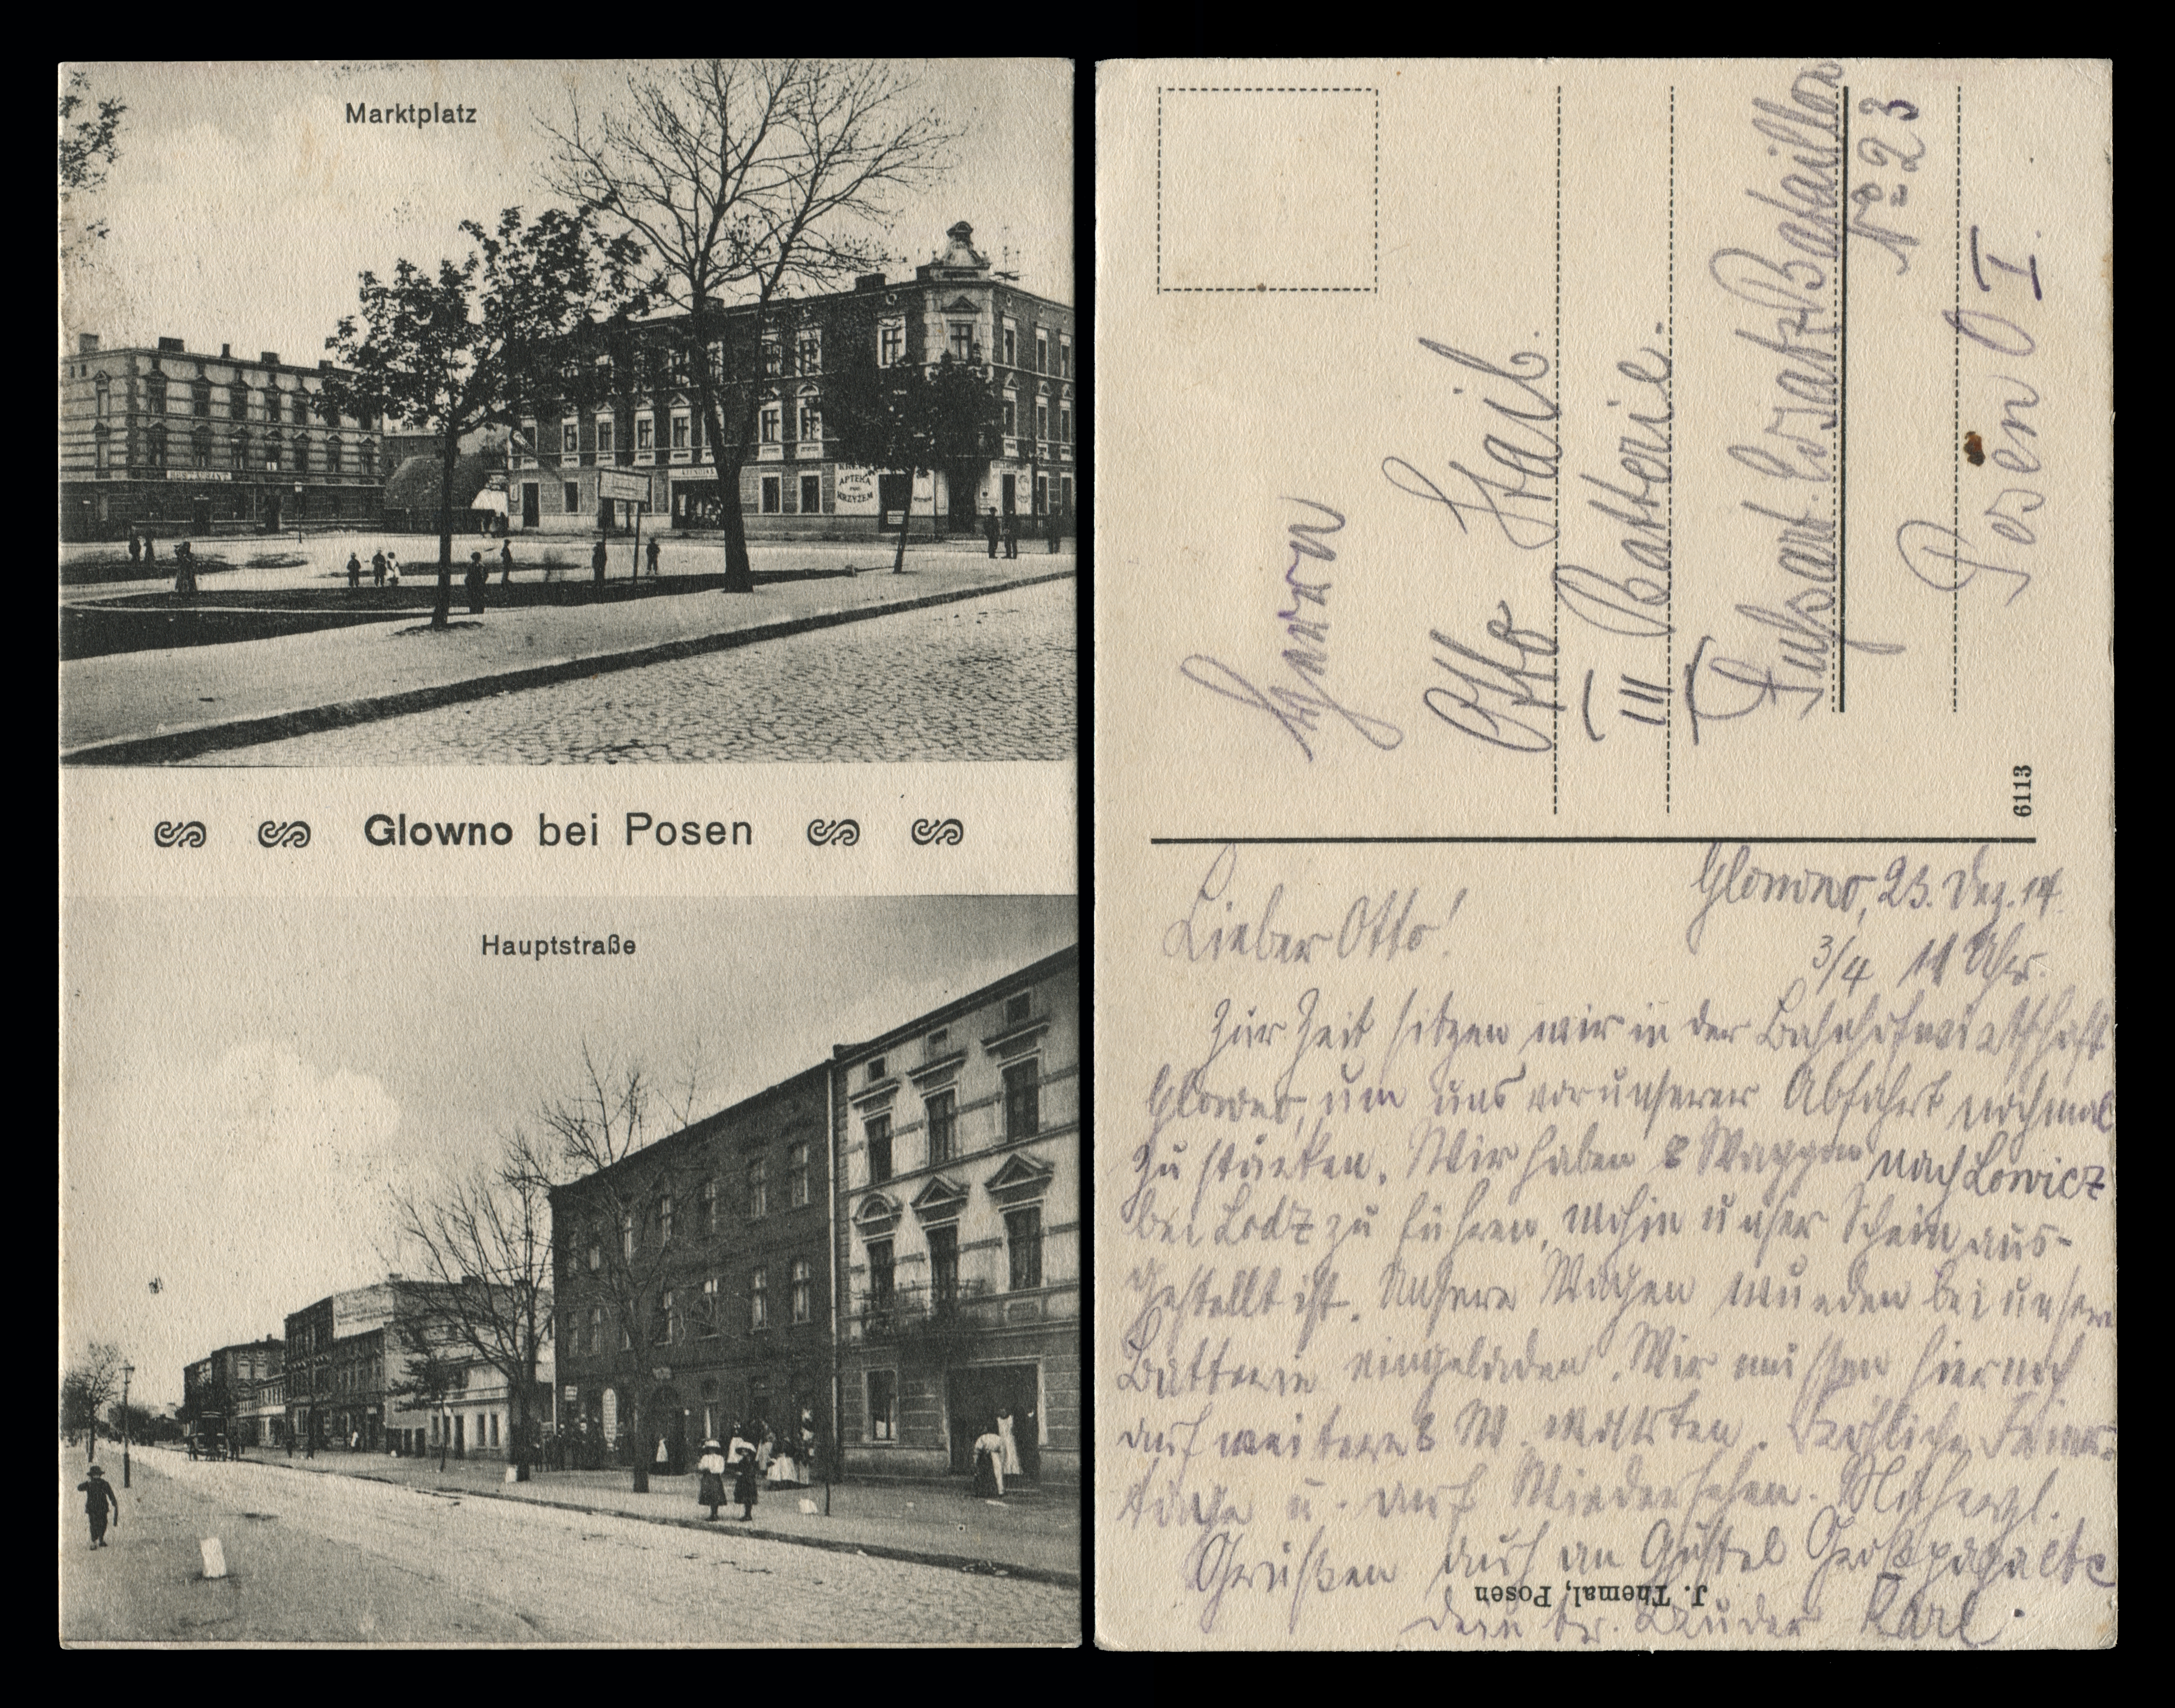 Marktplatz
RESTAURANT
APTEKA
POD
KRZYŻEM
Glowno bei Posen
Hauptstraße
Herrn
Otto Staib.
III Batterie.
Fußart. Ersatz Bataillon
No 23
Posen O I.
6113
Glowno, 23. Dez. 14.
3/4 11 Uhr.
Lieber Otto!
Zur Zeit sitzen wir in der Bahnhofwirtschaft
Glowno, um uns vor unserer Abfahrt nochmal
zu stärken. Wir haben 8 Waggon nach Lowicz
bei Lodz zu führen, wohin unser Schein aus-
gestellt ist. Unsere Wagen wurden bei unserer
Batterie eingeladen. Wir müssen hier noch
auf weitere 8 W. warten. Fröhliche Feier-
tage u. auf Wiedersehen. Mit herzl.
Grüßen auch an Gustel
Dein br. Bruder Karl.
J. Themal, Posen